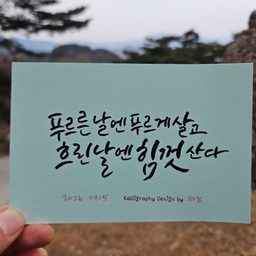 푸르른 날엔 푸르게 살고
흐린 날엔 힘껏 산다
2026. 0315 Calligraphy Design by 다온